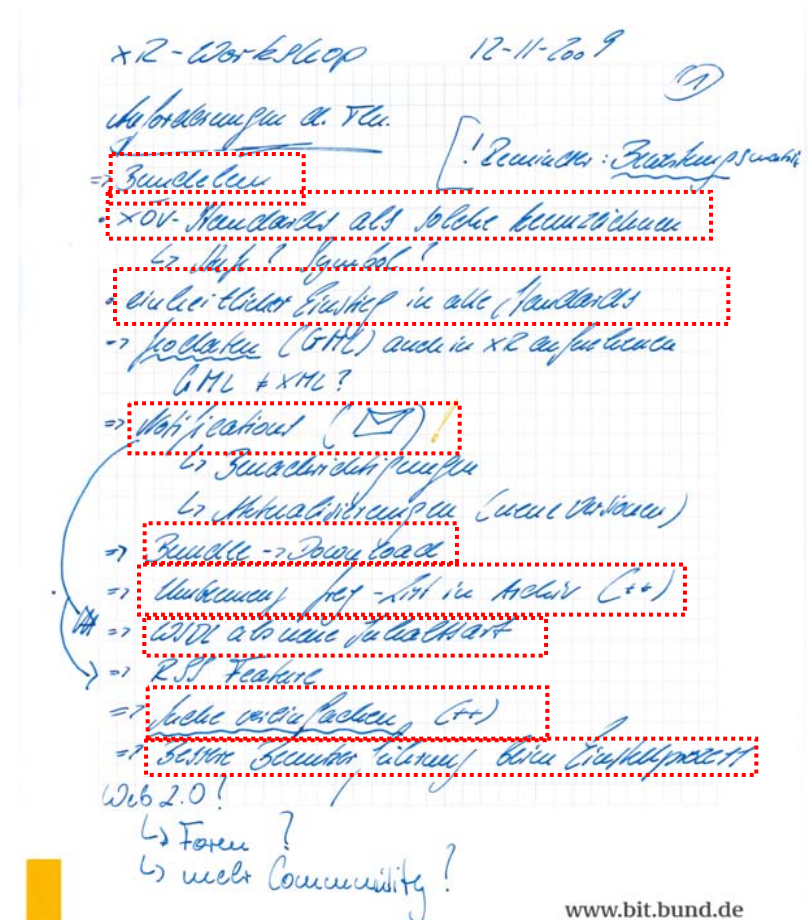 XR-Workshop 12-11-2009
①
Anforderungen d. Tln.
[! Reminder: Bewertungsmatrix
=> Bündeln
• XÖV-Standards als solche kennzeichnen
↳ ? Symbol?
• einheitlicher Einstieg in alle Standards
-> Geodaten (GML) auch in XR aufnehmen
GML ≠ XML?
=> Notifications (✉) !
↳ Benachrichtigungen
↳ Aktualisierungen (neue Versionen)
=> Bundle -> Download
=> Umbenennung Reg-List in Archiv (++)
=> WSDL als neue Inhaltsart
=> RSS Feature
=> Suche vereinfachen (++)
=> Bessere Benutzerführung beim Einstellprozess
Web 2.0!
↳ Foren?
↳ mehr Community!
www.bit.bund.de